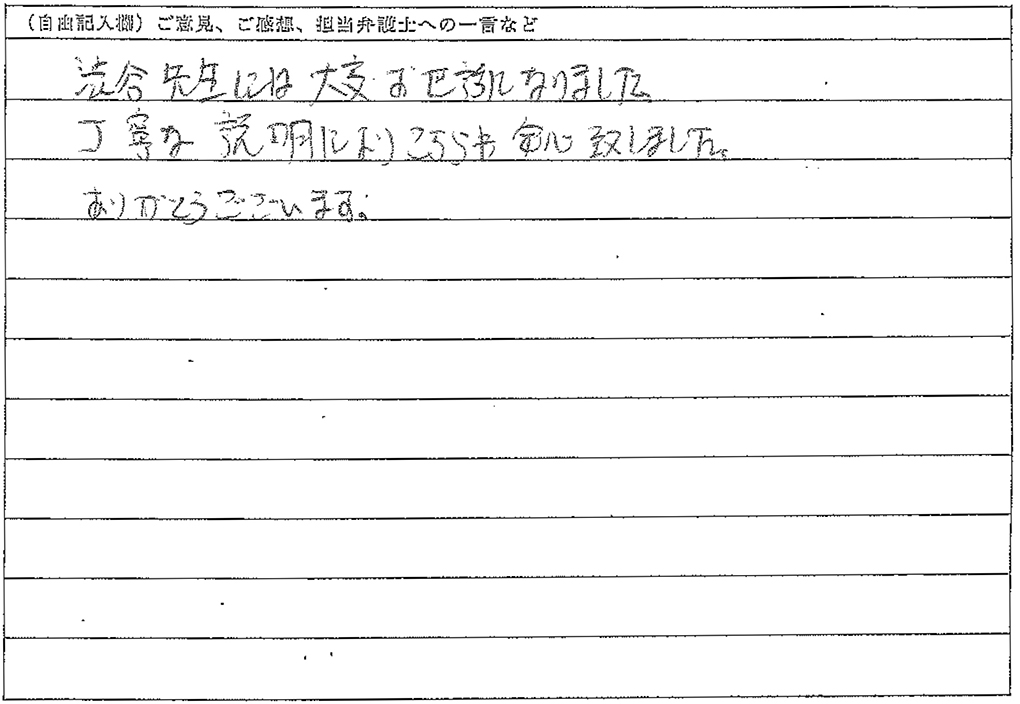 （自由記入欄）ご意見、ご感想、担当弁護士への一言など
渋谷先生には大変お世話になりました。
丁寧な説明によりこちらも安心致しました。
ありがとうございます。